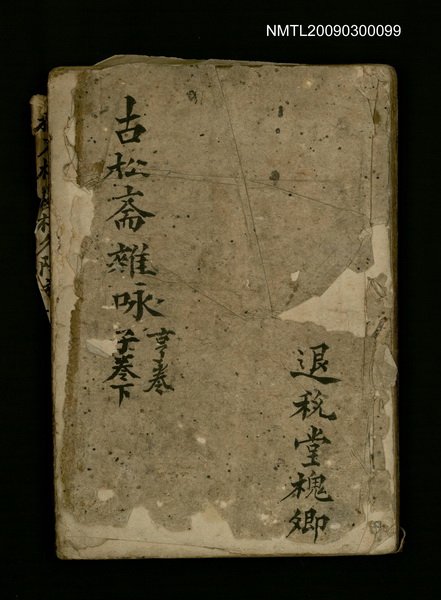 NMTL20090300099
古松斎雜咏
亨卷
子卷下
退稅堂槐卿